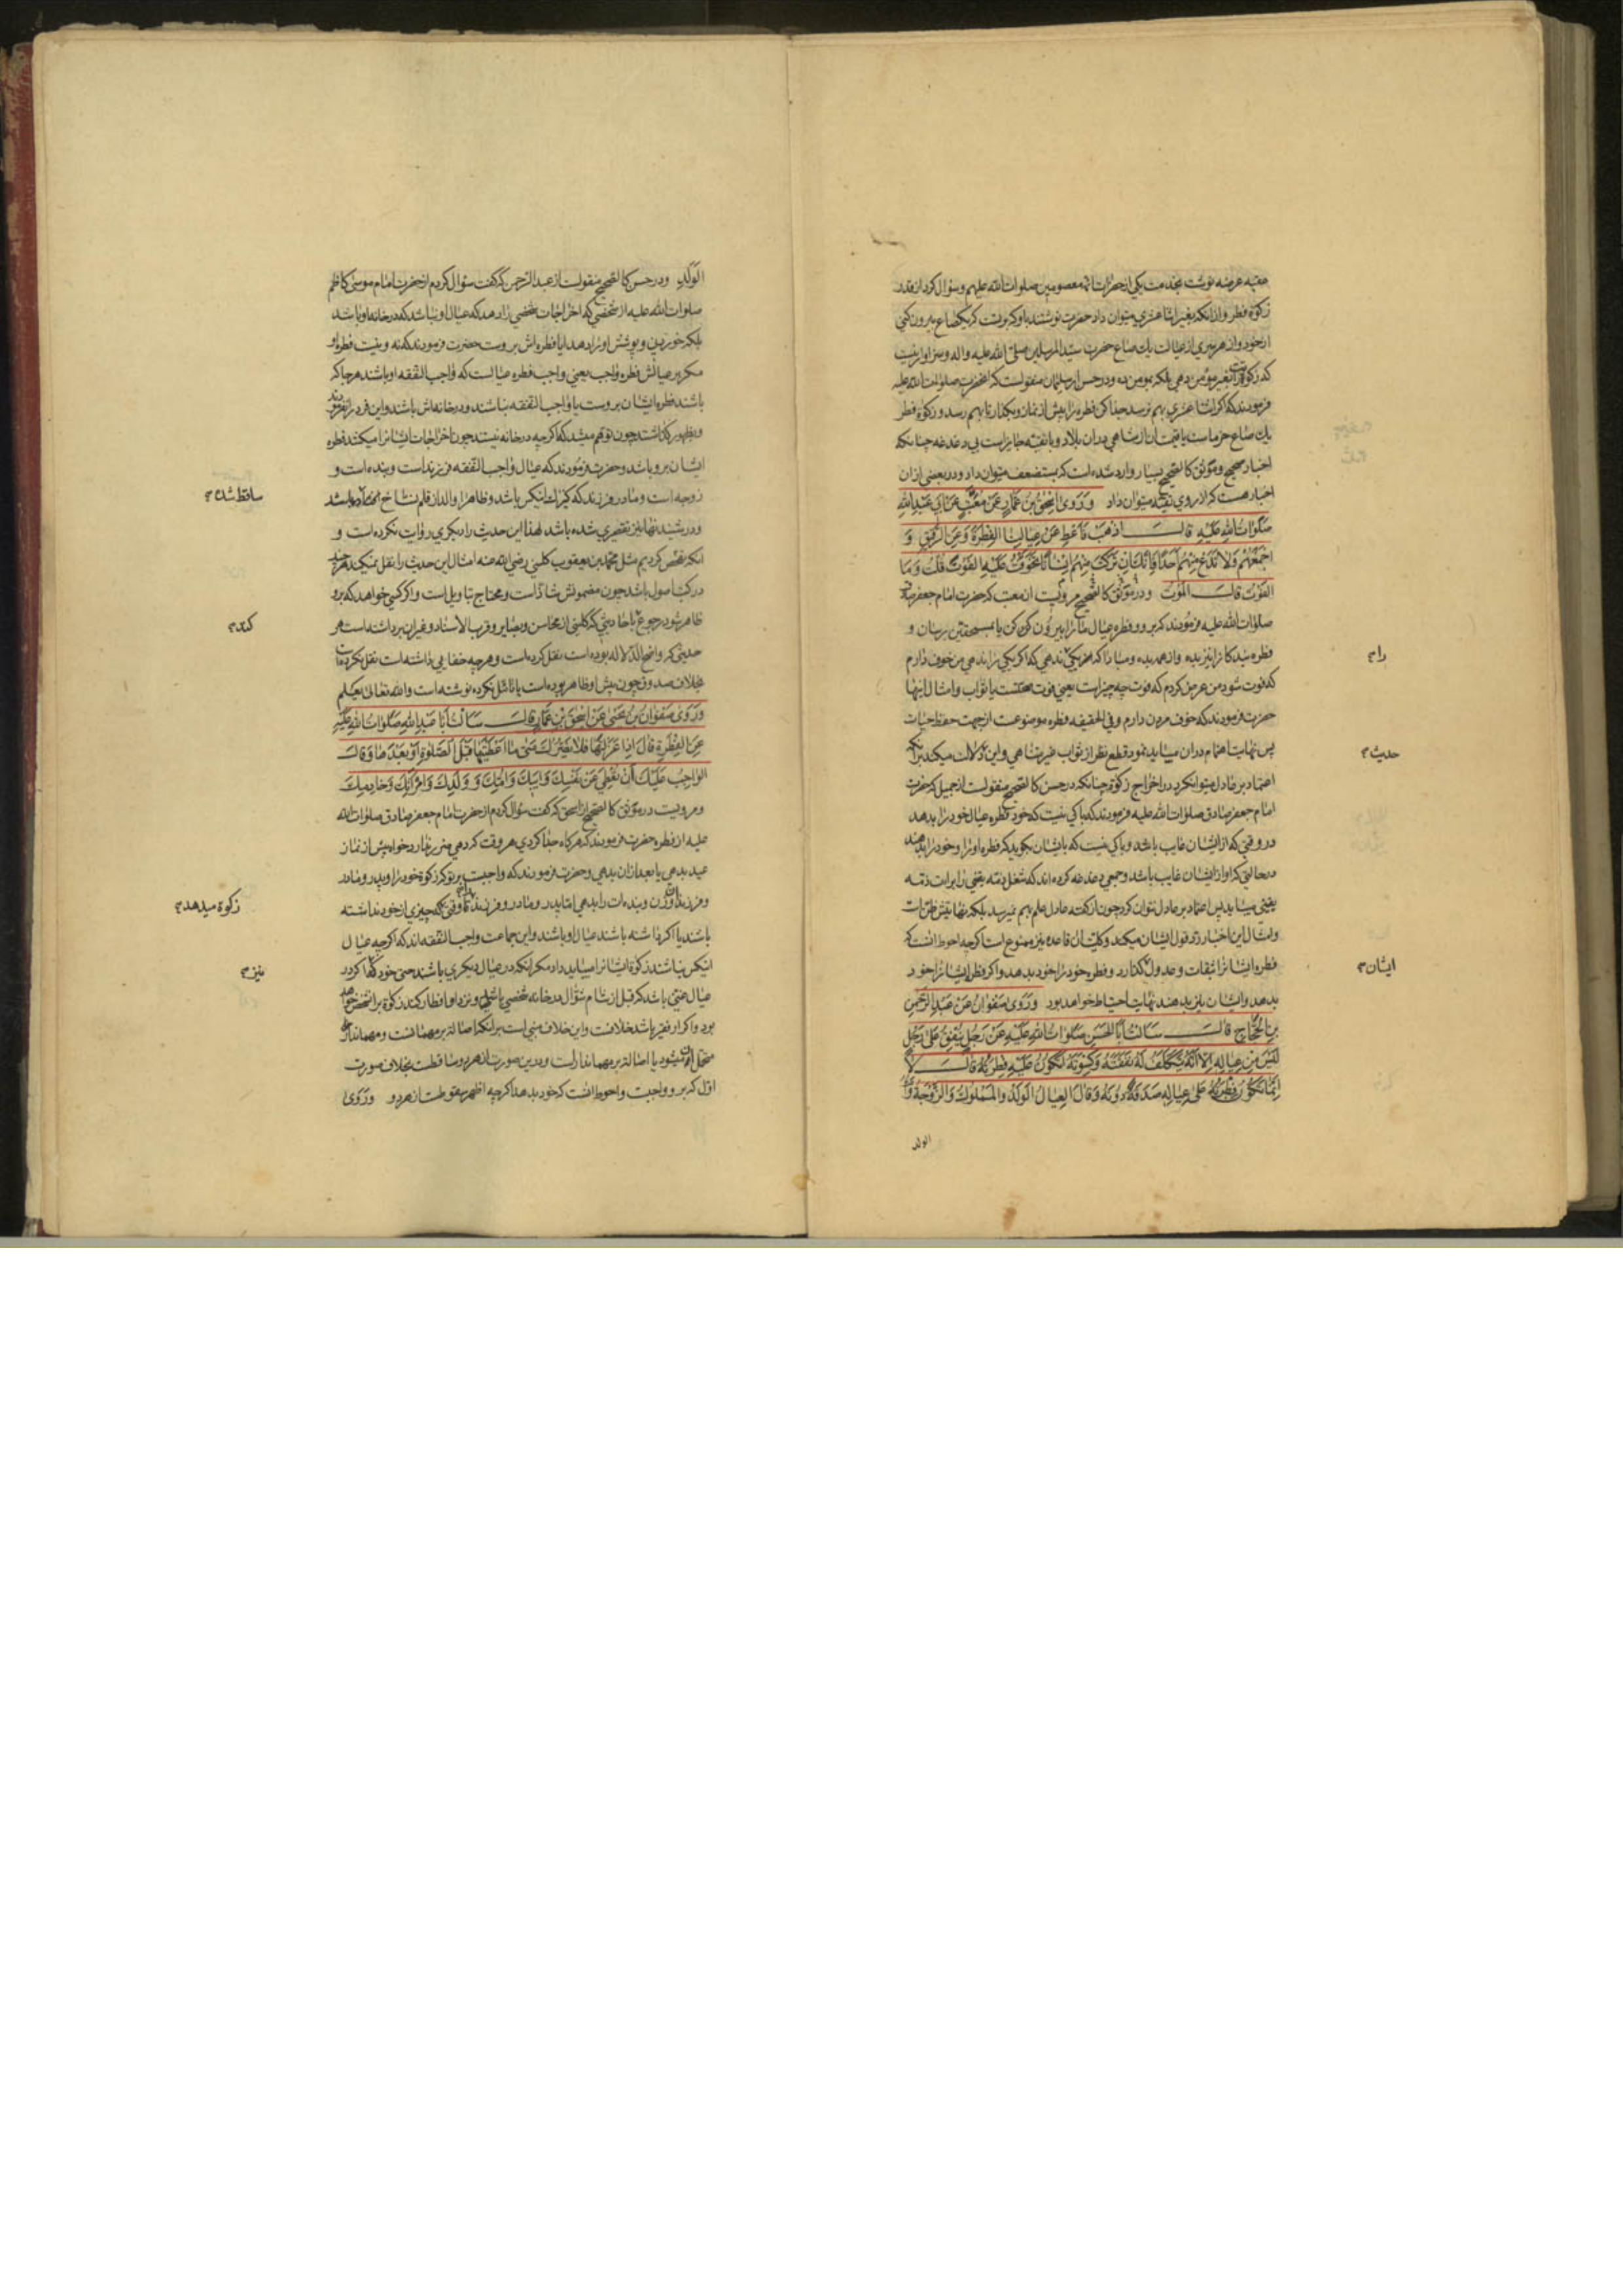 عقبه عریضه نوشت بخدمت یکی از حضرات ائمه معصومین صلوات الله علیهم و سؤال کرد از قدر
زکوة فطر و از آنکه بغیر اثنا عشری میتوان داد حضرت نوشتند باو که بر تست که یکصاع بیرون کنی
از خود و از هر سری از عیالت بیک صاع حضرت سید المرسلین صلی الله علیه واله و سزاوار نیست
که زکوة را بغیر مؤمن دهی بلکه بمومن ده و در حسن از سلیمان منقولست که انحضرت صلوات الله علیه
فرمودند که اکر اثنا عشری بهم نرسد جدا کن فطره را پیش از نماز و بکذار تا بهم رسد و زکوة فطر
یک صاع خرماست یا قیمت ان از شاهی در ان بلاد و با تقیه جایز است بی دغدغه چنانکه
اخبار صحیح و موثق کالصحیح بسیار وارد شده است که بمستضعف میتوان داد و در بعضی از ان
اخبار هست که از روی تقیه میتوان داد وَرَوَی اِسْحٰقُ بْنُ عَمَّارٍ عَنْ مُعَتِّبٍ عَنْ اَبی عَبْدِ اللهِ
صَلَوٰاتُ اللهِ عَلَیْهِ قٰالَ اذْهَبْ فَاَعْطِ عَنْ عِیٰالِنَا الْفِطْرَةَ وَعَنِ الرَّقیقِ وَ
اجْمَعْهُمْ وَلٰا تَدَعْ مِنْهُمْ اَحَدًا فَاِنَّکَ اِنْ تَرَکْتَ مِنْهُمْ اِنْسٰانًا تَخَوَّفْتُ عَلَیْهِ الْفَوْتَ قُلْتُ وَمَا
الْفَوْتُ قٰالَ الْمَوْتُ و در موثق کالصحیح مرویست از معتب که حضرت امام جعفر صادق
صلوات الله علیه فرمودند که برو و فطره عیال ما را بیرون کن یا بمستحقین برسان و
فطره بندکانرا نیز بده و از همه بده و مبادا که هیچ یکی ندهی که اکر یکی را ندهی من خوف دارم
که فوت شود من عرض کردم که فوت چه چیز است یعنی فوت یا ثواب و امثال اینها
حضرت فرمودند که خوف مردن دارم و فی الحقیقه فطره موضوعست از جهت حفظ حیات
پس نهایت اهتمام در ان میباید نمود قطع نظر از ثواب غیر متناهی و این دلالت میکند بر آنکه
اعتماد بر عادل میتوان کرد در اخراج زکوة چنانکه در حسن کالصحیح منقولست از جمیل که حضرت
امام جعفر صادق صلوات الله علیه فرمودند که باکی نیست که خود فطره عیال خود را بدهد
در وقتی که از ایشان غایب باشد و باکی نیست که بایشان بکوید که فطره او را و خود را بدهند
در حالتی که او از ایشان غایب باشد و جمعی دغدغه کرده اند که شغل ذمه یقینی را برات ذمه
یقینی میباید پس اعتماد بر عادل نتوان کرد چون از کفته عادل علم بهم نمیرسد بلکه نهایتش ظن است
و امثال این اخبار رد قول ایشان میکند و کلیت ان قاعده نیز ممنوع است اکرچه احوط انست که
فطره ایشانرا بثقات و عدول کذارد و فطره خود را خود بدهد و اکر فطره ایشانرا خود
بدهد و ایشان نیز بدهند نهایت احتیاط خواهد بود وَرَوَی صَفْوٰانُ عَنْ عَبْدِ الرَّحْمٰنِ
بْنِ الْحَجّٰاجِ قٰالَ سَاَلْتُ اَبَا الْحَسَنِ صَلَوٰاتُ اللهِ عَلَیْهِ عَنْ رَجُلٍ یُنْفِقُ عَلٰی رَجُلٍ
لَیْسَ مِنْ عِیٰالِهِ اِلّٰا اَنَّهُ یَتَکَلَّفُ لَهُ نَفَقَتَهُ وَکِسْوَتَهُ اَتَکُونُ عَلَیْهِ فِطْرَتُهُ قٰالَ لٰا
اِنَّمٰا تَکُونُ فِطْرَتُهُ عَلٰی عِیٰالِهِ صَدَقَةً دُونَهُ وَقٰالَ الْعِیٰالُ الْوَلَدُ وَالْمَمْلُوکُ وَالزَّوْجَةُ وَاُمُّ
الولد
را م
حدیث م
ایشان م
الْوَلَدِ و در حسن کالصحیح منقولست از عبد الرحمن که کفت سؤال کردم از حضرت امام موسی کاظم
صلوات الله علیه از شخصی که اخراجات شخصی را دهد که عیال او نباشد که در خانه او باشد
بلکه خوردن و پوشش او را دهد ایا فطره اش بر وست حضرت فرمودند که نه و نیست فطره او
مکر بر عیالش فطره واجب یعنی واجب فطره عیالست که واجب النفقه او باشند هر جا که
باشند فطره ایشان بر وست یا واجب النفقه نباشند و در خانه اش باشند و این فرد را نفرمودند
و بظهور کذاشتند چون توهم میشد که اکرچه در خانه نیستند چون اخراجات ایشانرا میکشد فطره
ایشان بر و باشد و حضرت فرمودند که عیال واجب النفقه فرزند است و بنده است و
زوجه است و مادر فرزند که کنیز است اینکس باشد و ظاهرا والد از قلم نساخ
و در شیند نها نیز تقصیری شده باشد لهذا این حدیث را دیکری روایت نکرده است و
انکه تفحص کردیم مثل محمد بن یعقوب کلینی رضی الله عنه امثال این حدیث را نقل نمیکند هر چند
در کتب اصول باشد چون مضمونش شاذ است و محتاج تاویل است و اکر کسی خواهد که برو
ظاهر شود رجوع باحادیثی که کلینی از محاسن و بصایر و قرب الاسناد و غیر ان برداشته است هر
حدیثی که واضح الدلاله بوده است نقل کرده است و هر چه خفایی داشته است نقل نکرده است
بخلاف صدوق چون پیش او ظاهر بوده است یا تامل نکرده نوشته است والله تعالی یعلم
وَرَوٰی صَفْوٰانُ بْنُ یَحْیٰی عَنْ اِسْحٰقَ بْنِ عَمَّارٍ قٰالَ سَاَلْتُ اَبٰا عَبْدِ اللهِ صَلَوٰاتُ اللهِ عَلَیْهِ
عَنِ الْفِطْرَةِ قٰالَ اِذٰا عَزَلْتَهٰا فَلٰا یَضُرُّکَ مَتٰی مٰا اَعْطَیْتَهٰا قَبْلَ الصَّلٰوةِ اَوْ بَعْدَهٰا وَقٰالَ
الْوٰاجِبُ عَلَیْکَ اَنْ تُعْطِیَ عَنْ نَفْسِکَ وَاَبِیکَ وَاُمِّکَ وَ وَلَدِکَ وَامْرَاَتِکَ وَخٰادِمِکَ
و مرویست در موثق کالصحیح از اسحق که کفت سؤال کردم از حضرت امام جعفر صادق صلوات الله
علیه از فطره حضرت فرمودند که هر کاه جدا کردی هر وقت که دهی ضرر ندارد خواه پیش از نماز
عید بدهی یا بعد از ان بدهی و حضرت فرمودند که واجبست بر تو که زکوة خود را و پدر و مادر
و فرزندان و زن و بنده ات را بدهی اما پدر و مادر و فرزند تا وقتی که چیزی از خود نداشته
باشند یا اکر داشته باشند عیال او باشند و این جماعت واجب النفقه اند که اکرچه عیال
اینکس نباشند زکوة ایشانرا میباید داد مکر انکه در عیال دیکری باشند حتی خود کفا کرد
عیال غنی باشد که قبل از شام شوال در خانه شخصی باشد و نزد او افطار کند زکوة بر انشخص خواهد
بود و اکر او فقیر باشد خلافست و این خلاف مبنی است بر انکه اصاله بر مهمانست و مهماندار
متحمل میشود یا اصالة بر مهماندارست و در ین صورت از هر دو ساقطست بخلاف صورت
اول که بر و واجبست و احوط انست که خود بدهد اکرچه اظهر سقوطست از هر دو وَرَوَی
ساقط شده م
کند م
زکوة میدهد م
نیز م